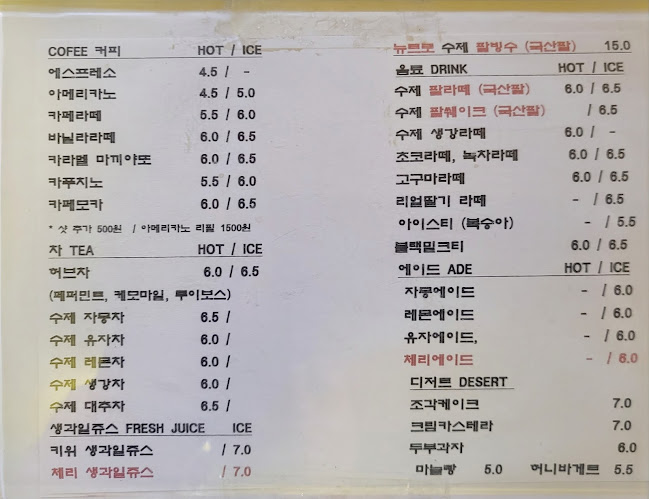 COFEE 커피 HOT / ICE
에스프레소 4.5 / -
아메리카노 4.5 / 5.0
카페라떼 5.5 / 6.0
바닐라라떼 6.0 / 6.5
카라멜 마끼야또 6.0 / 6.5
카푸치노 5.5 / 6.0
카페모카 6.0 / 6.5
* 샷 추가 500원 / 아메리카노 리필 1500원
차 TEA HOT / ICE
허브차 6.0 / 6.5
(페퍼민트, 케모마일, 루이보스)
수제 자몽차 6.5 /
수제 유자차 6.0 /
수제 레몬차 6.0 /
수제 생강차 6.0 /
수제 대추차 6.5 /
생과일쥬스 FRESH JUICE ICE
키위 생과일쥬스 / 7.0
체리 생과일쥬스 / 7.0
뉴트로 수제 팥빙수 (국산팥) 15.0
음료 DRINK HOT / ICE
수제 팥라떼 (국산팥) 6.0 / 6.5
수제 팥쉐이크 (국산팥) / 6.5
수제 생강라떼 6.0 / -
초코라떼, 녹차라떼 6.0 / 6.5
고구마라떼 6.0 / 6.5
리얼딸기 라떼 - / 6.5
아이스티 (복숭아) - / 5.5
블랙밀크티 6.0 / 6.5
에이드 ADE HOT / ICE
자몽에이드 - / 6.0
레몬에이드 - / 6.0
유자에이드, - / 6.0
체리에이드 - / 6.0
디저트 DESERT
조각케이크 7.0
크림카스테라 7.0
두부과자 6.0
마늘빵 5.0 허니바게트 5.5